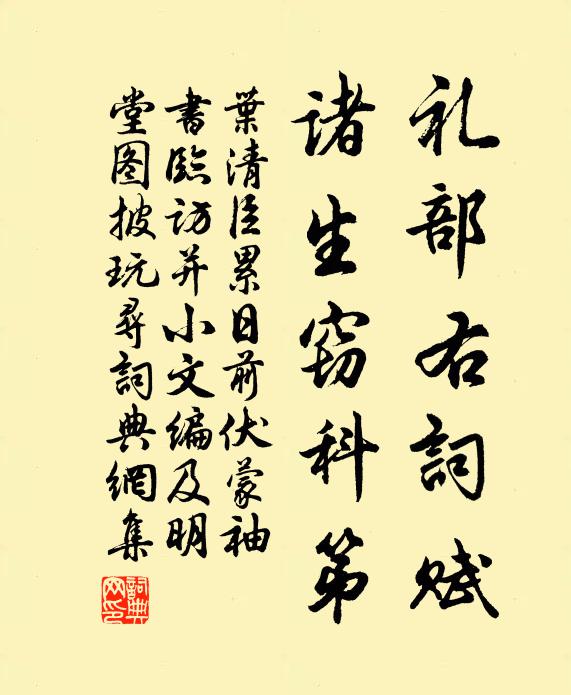 礼部右詞賦
諸生窃科第
葉清臣累日前伏蒙袖
書臨访并小文编及明
堂图披玩尋詞典網集
詞典网印